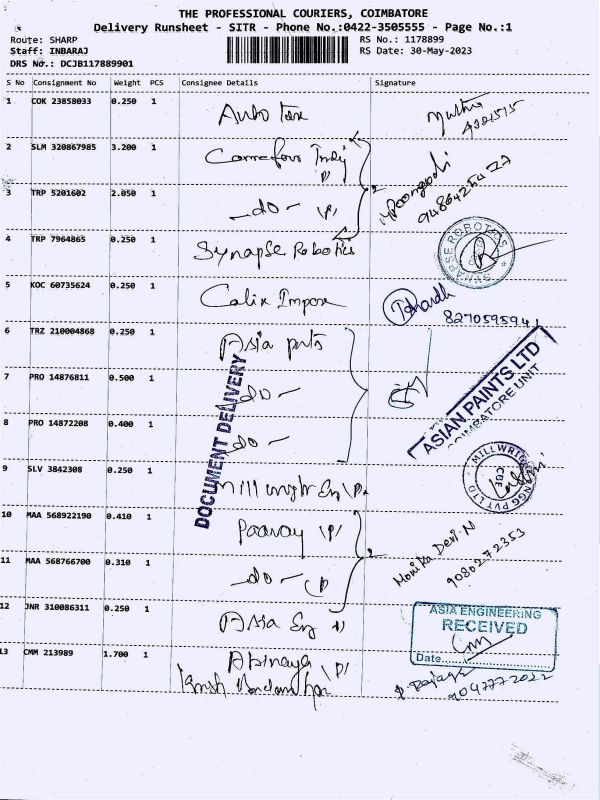 THE PROFESSIONAL COURIERS, COIMBATORE
Delivery Runsheet - SITR - Phone No.:0422-3505555 - Page No.:1
Route: SHARP
RS No.: 1178899
Staff: INBARAJ
RS Date: 30-May-2023
DRS No.: DCJB117889901
S No Consignment No Weight PCS Consignee Details Signature
1 COK 23858033 0.250 1 Auto Tex
2 SLM 320867985 3.200 1
3 TRP 5201602 2.050 1 -do- (P)
9486425427
4 TRP 7964865 0.250 1 Synapse Robotics
SYNAPSE ROBOTICS
5 KOC 60735624 0.250 1 Calix
8270595941
6 TRZ 210004868 0.250 1 Asia pnts
7 PRO 14876811 0.500 1 -do-
ASIAN PAINTS LTD
COIMBATORE UNIT
8 PRO 14872208 0.400 1 -do-
DOCUMENT DELIVERY
9 SLV 3842308 0.250 1 Millwright Eng (P)
CBE
10 MAA 568922190 0.410 1 Paavay (P)
Monika Devi.N
9080272353
11 MAA 568766700 0.310 1 -do- (P)
12 JNR 310086311 0.250 1 Asia Eng
ASIA ENGINEERING
RECEIVED
Date
13 CMM 213989 1.700 1 Abinaya (P)